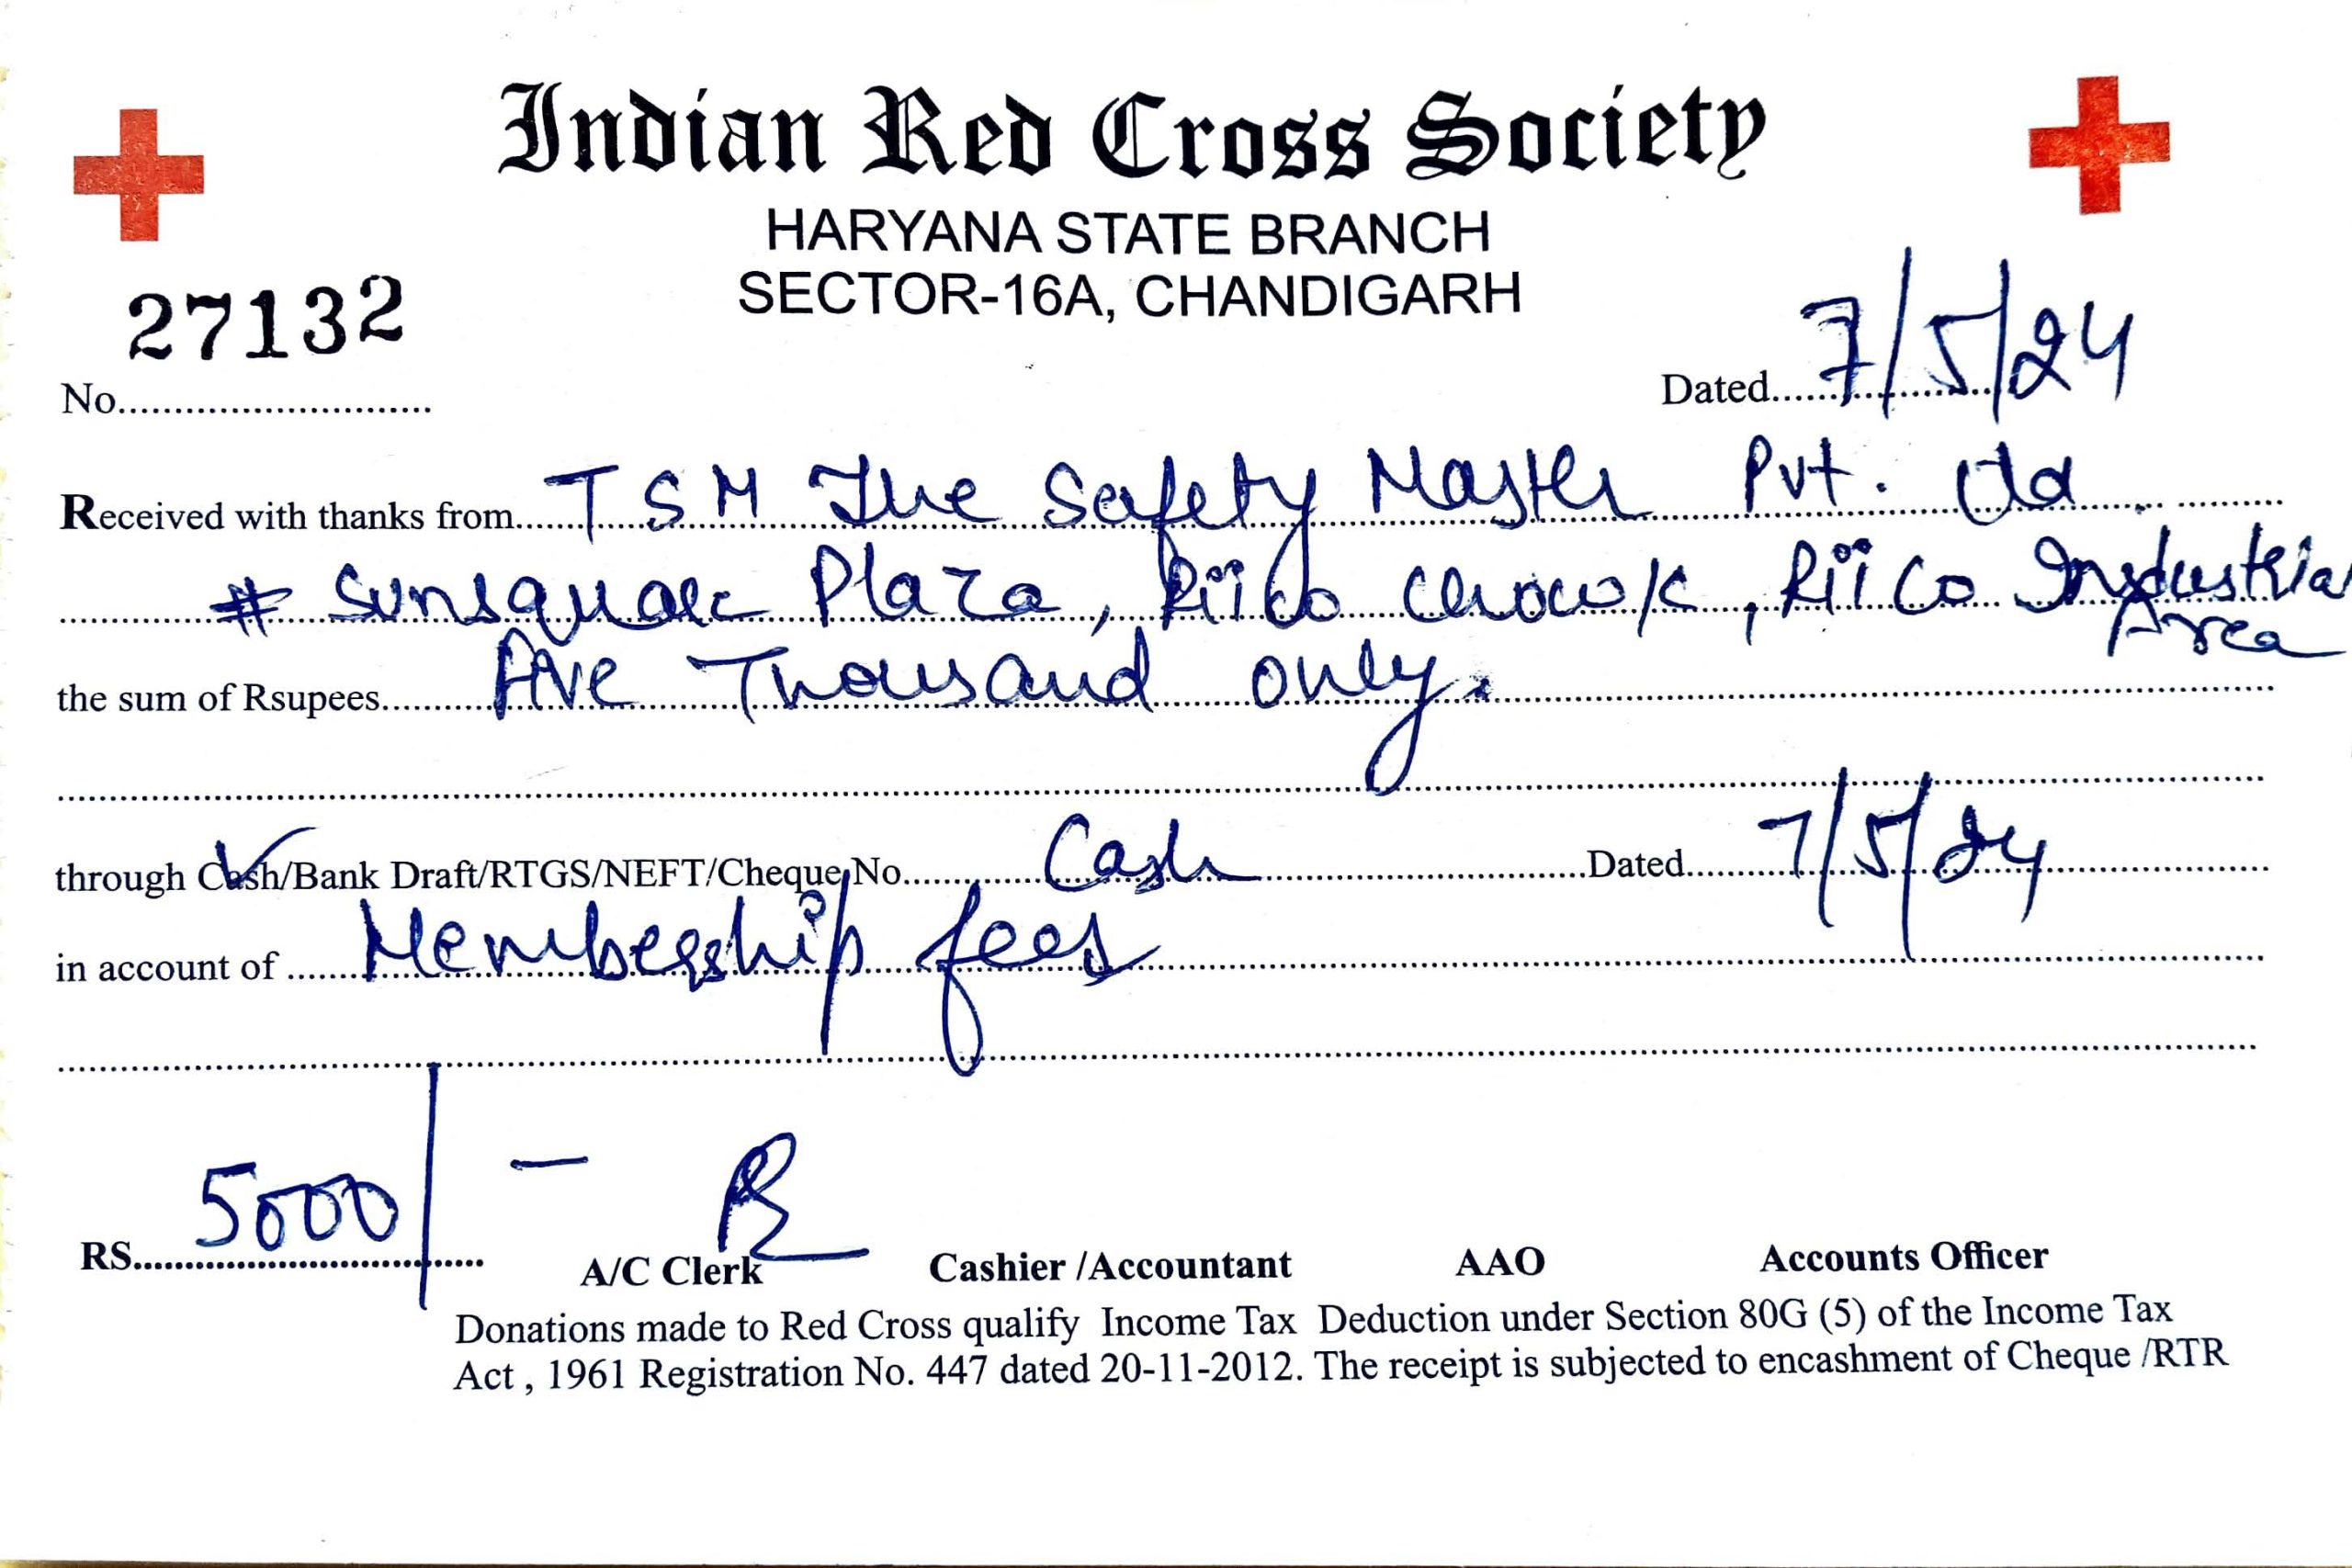 Indian Red Cross Society
HARYANA STATE BRANCH
SECTOR-16A, CHANDIGARH
27132
No..............................
Dated 7/5/24
Received with thanks from T S M The Safety Master Pvt. Ltd.
# Sunsquare Plaza, Riico Chowk, Riico Industrial
Area
the sum of Rsupees Five Thousand only.
through Cash/Bank Draft/RTGS/NEFT/Cheque No. Cash Dated 7/5/24
in account of Membership fees
RS. 5000/-
A/C Clerk Cashier /Accountant AAO Accounts Officer
Donations made to Red Cross qualify Income Tax Deduction under Section 80G (5) of the Income Tax
Act , 1961 Registration No. 447 dated 20-11-2012. The receipt is subjected to encashment of Cheque /RTR